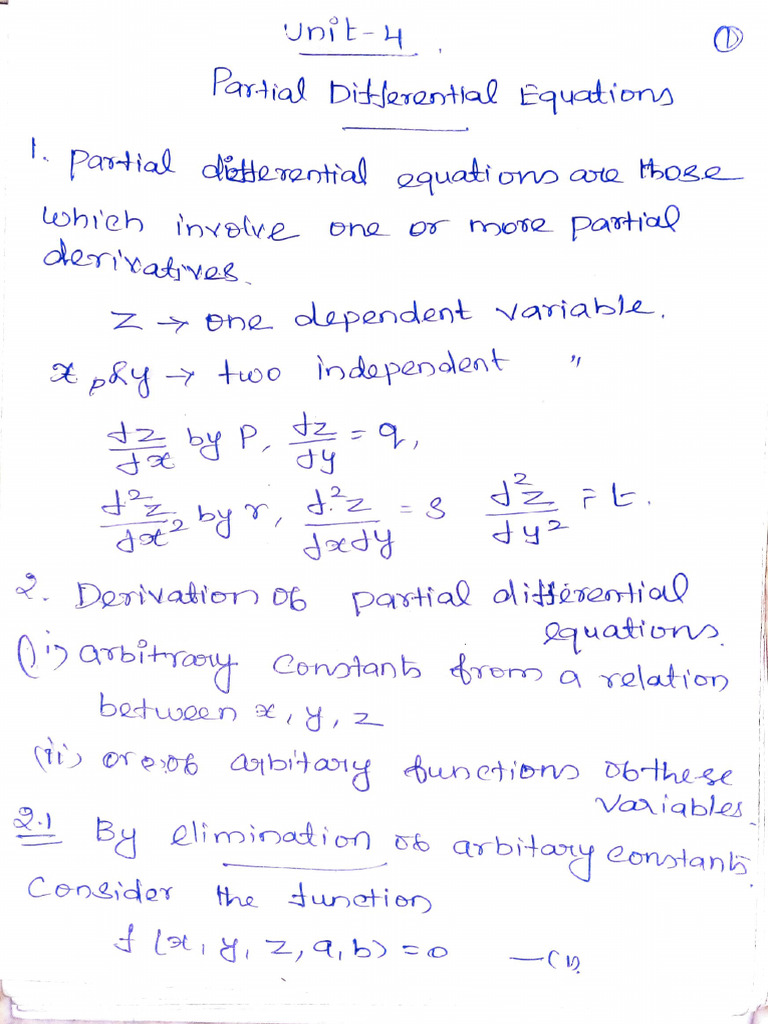 Unit-4.
①
Partial Differential Equations
1. Partial differential equations are those
which involve one or more partial
derivatives.
z → one dependent variable.
x, & y → two independent "
∂z/∂x by P, ∂z/∂y = q,
∂²z/∂x² by r, ∂²z/∂x∂y = s ∂²z/∂y² = t.
2. Derivation of partial differential
equations.
(i) arbitrary constants from a relation
between x, y, z
(ii) or of arbitary functions of these
variables.
2.1 By elimination of arbitary constants.
Consider the function
f (x, y, z, a, b) = 0 —(1)